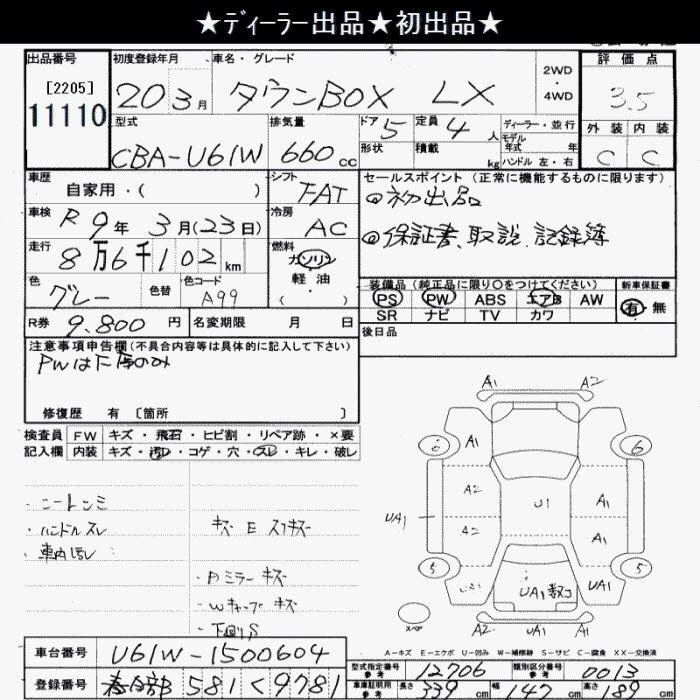 ★ディーラー出品★初出品★
出品番号
[2205]
11110
初度登録年月
20 3月
車名・グレード
タウンBOX LX
2WD
・
4WD
評価点
3.5
外装 内装
C C
型式
CBA-U61W
排気量
660cc
ドア 5
形状
定員 4人
積載 kg
ディーラー・並行
モデル年式 年
ハンドル 左・右
車歴
自家用・( )
シフト
FAT
車検 R9年3月(23日)
冷房
AC
走行
8万6千102km
燃料
ガソリン
軽油
( )
色
グレー
色替
色コード
A99
R券 9.800円
名変期限 月 日
セールスポイント (正常に機能するものに限ります)
◎初出品
◎保証書、取説、記録簿
装備品(純正品に限り○をつけてください)
PS PW ABS エアB AW
SR ナビ TV カワ
新車保証書
有 無
後日品
注意事項申告欄(不具合内容等は具体的に記入して下さい)
PWは下席のみ
修復歴 有 [箇所 ]
検査員
記入欄
FW キズ・飛石・ヒビ割・リペア跡・×要
内装 キズ・汚レ・コゲ・穴・スレ・キレ・破レ
・ハンドルスレ
・Pミラーキズ
A1 A2
6 A1 6
A2 U1 A1
UA1 A2 A1
5 UA1 UA1 5
A2 UA1 A1
スペア
A-キズ E-エクボ U-凹み W-補修跡 S-サビ C-腐食 XX-交換済
車台番号
U61W-1500604
登録番号
春日部 581 く 9781
型式指定番号
参考
12706
類別区分番号
参考
0013
車庫証明用
参考
長さ 339cm
幅 147cm
高さ 189cm